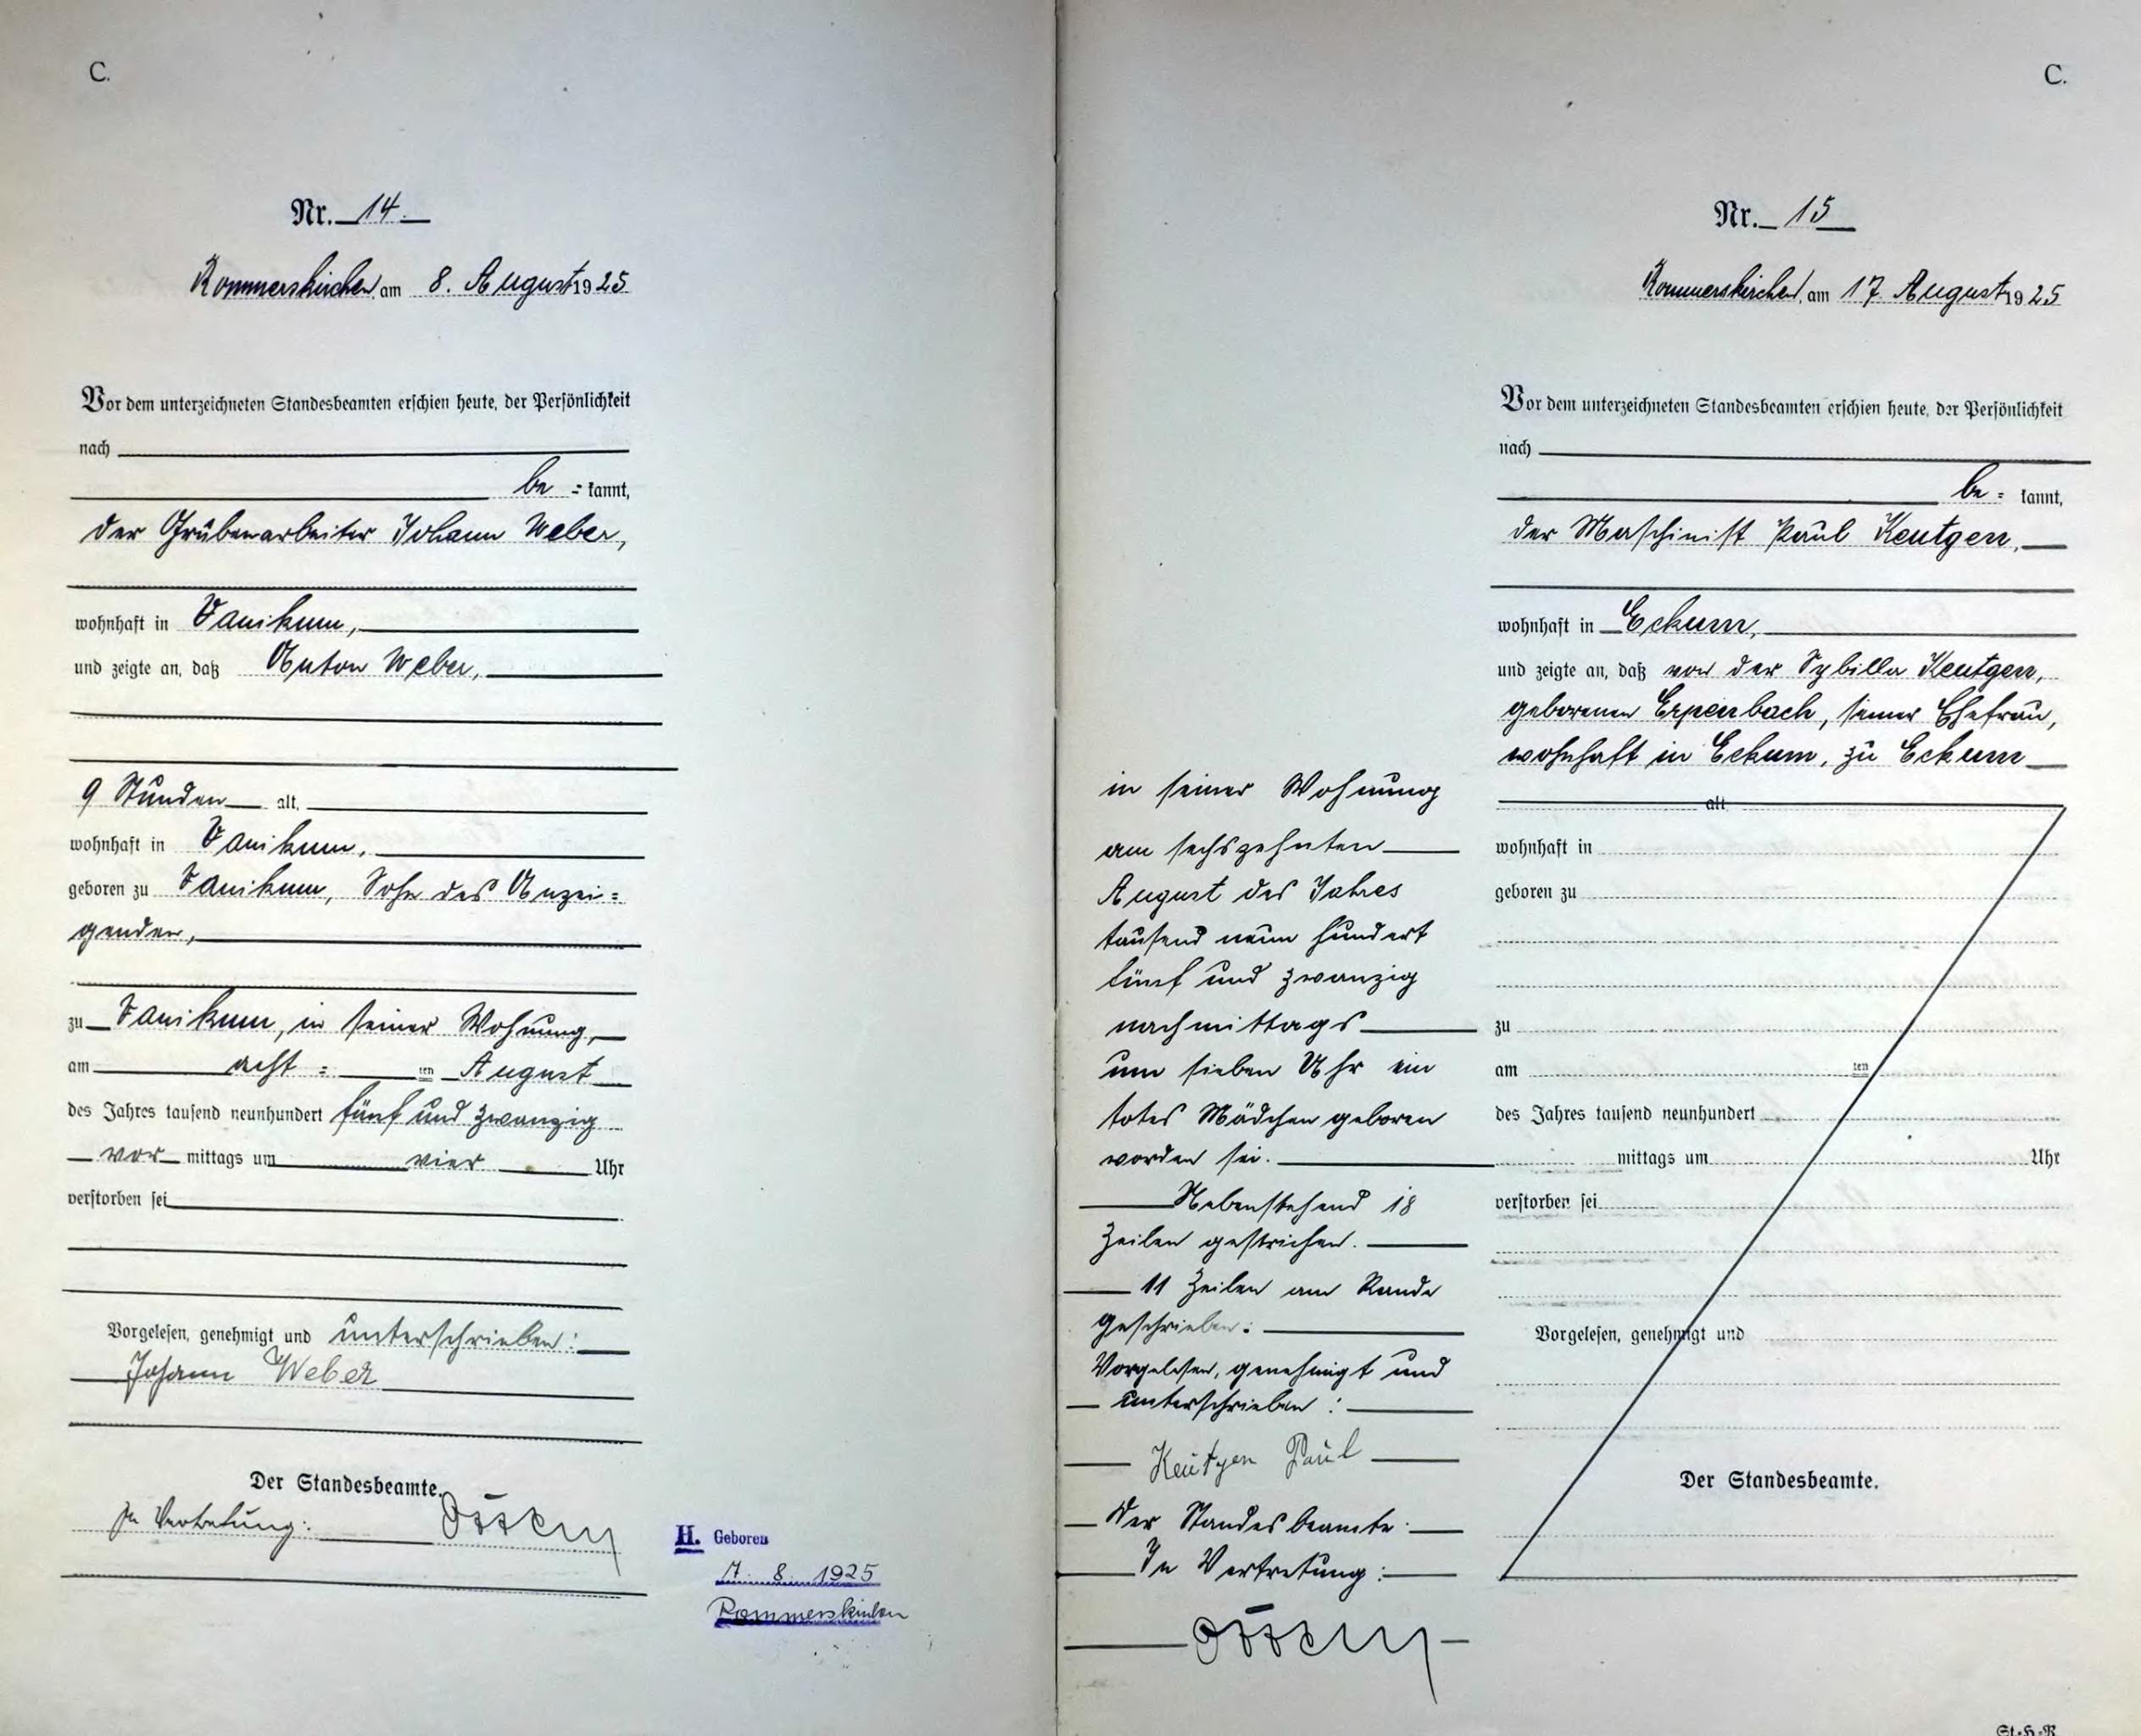 C.
Nr. 14.
Rommerskirchen, am 8. August 1925
Vor dem unterzeichneten Standesbeamten erschien heute, der Persönlichkeit
nach
be = kannt,
der Grubenarbeiter Johann Weber,
wohnhaft in Vanikum,
und zeigte an, daß Anton Weber,
9 Stunden alt,
wohnhaft in Vanikum,
geboren zu Vanikum, Sohn des Anzei=
genden,
zu Vanikum, in seiner Wohnung,
am acht = ten August
des Jahres tausend neunhundert fünf und zwanzig
vor mittags um vier Uhr
verstorben sei
Vorgelesen, genehmigt und unterschrieben:
Johann Weber
Der Standesbeamte.
In Vertretung:
H. Geboren
7. 8. 1925
Rommerskirchen
C.
Nr. 15
Rommerskirchen, am 17. August 1925
Vor dem unterzeichneten Standesbeamten erschien heute, der Persönlichkeit
nach
be = kannt,
der Maschinist Paul Keutgen,
wohnhaft in Eckum,
und zeigte an, daß von der Sybilla Keutgen,
geborenen Erpenbach, seiner Ehefrau,
wohnhaft in Eckum, zu Eckum
in seiner Wohnung
am sechszehnten
August des Jahres
tausend neun hundert
fünf und zwanzig
nachmittags
um sieben Uhr ein
totes Mädchen geboren
worden sei.
Nebenstehend 18
Zeilen gestrichen.
11 Zeilen am Rande
geschrieben:
Vorgelesen, genehmigt und
unterschrieben:
Keutgen Paul
Der Standesbeamte.
In Vertretung:
alt
wohnhaft in
geboren zu
zu
am ten
des Jahres tausend neunhundert
mittags um Uhr
verstorben sei
Vorgelesen, genehmigt und
Der Standesbeamte.
St.H.R.